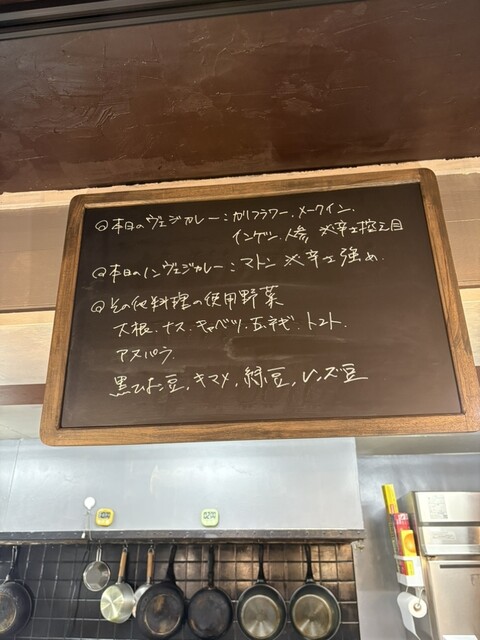 ◎本日のヴェジカレー：カリフラワー、メークイン、
インゲン、人参 ※辛さ控え目
◎本日のノンヴェジカレー：マトン ※辛さ強め、
◎その他料理の使用野菜
大根、ナス、キャベツ、玉ネギ、トマト、
アスパラ、
黒ひよこ豆、キマメ、緑豆、レンズ豆